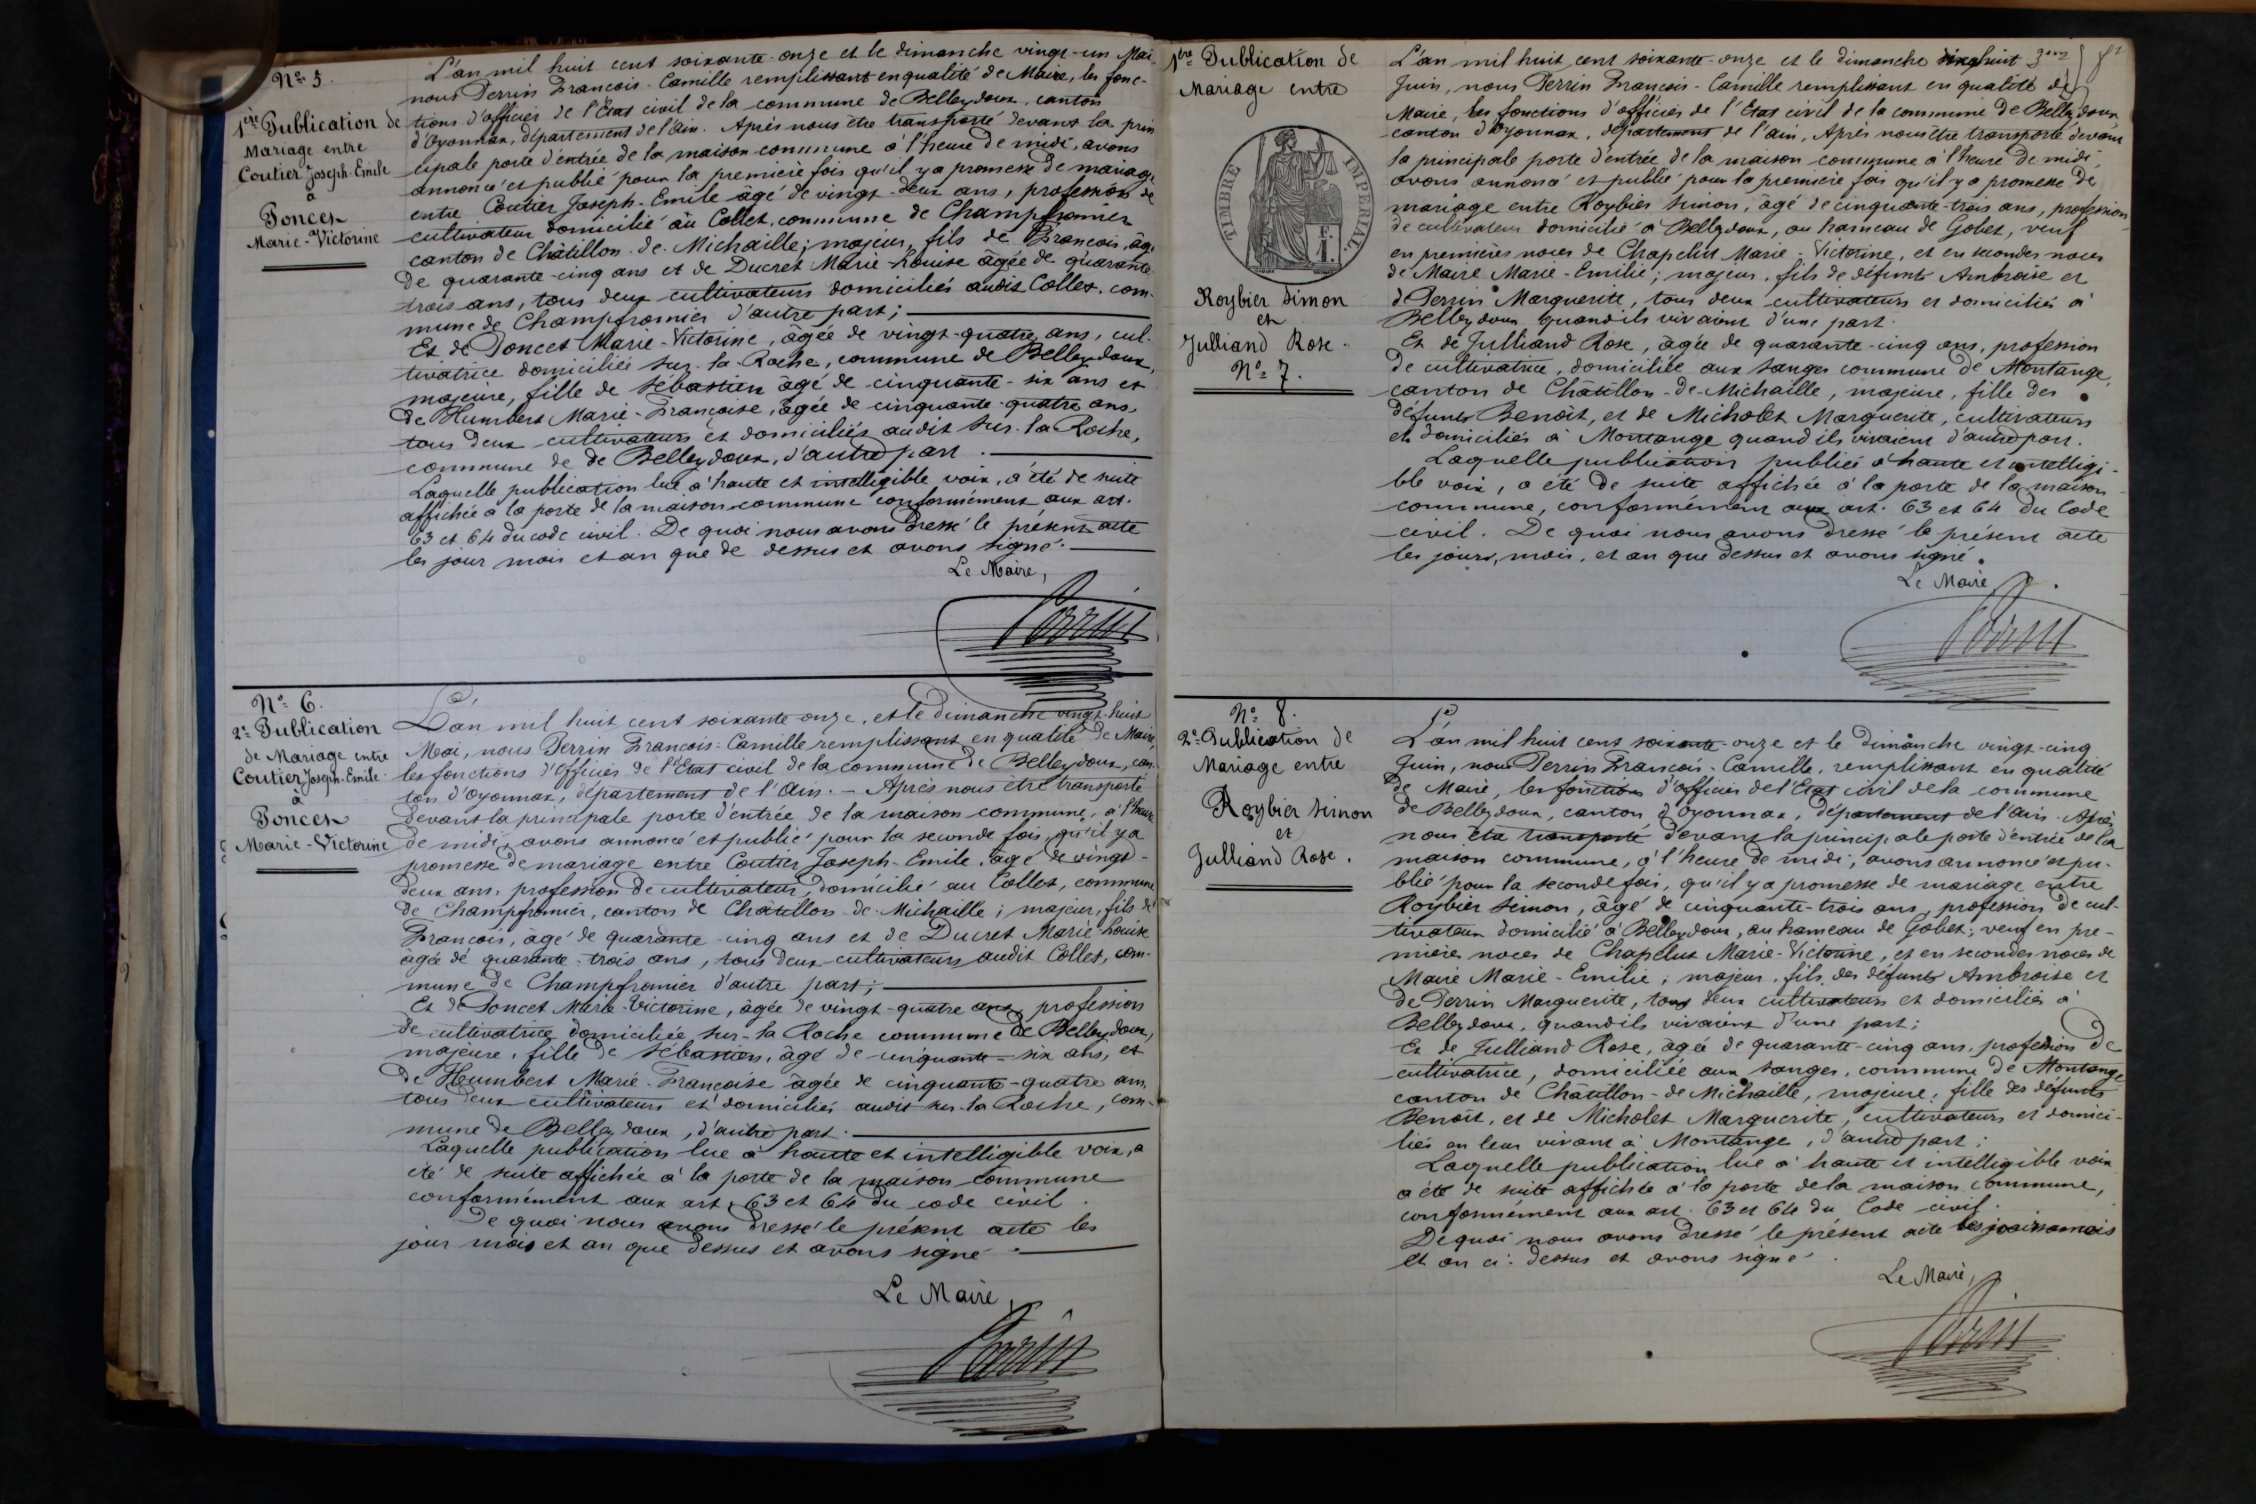 Nº 5.
1ère Publication de
Mariage entre
Coutier Joseph-Emile
à
Poncet
Marie-Victorine
L'an mil huit cent soixante-onze et le dimanche vingt-un Mai
nous Perrin François-Camille remplissant en qualité de Maire, les fonc-
tions d'officier de l'Etat civil de la commune de Belleydoux, canton
d'Oyonnax, département de l'Ain. Après nous être transporté devant la prin
cipale porte d'entrée de la maison commune à l'heure de midi, avons
annoncé et publié pour la première fois qu'il y a promesse de mariage
entre Coutier Joseph-Emile âgé de vingt-deux ans, profession de
cultivateur domicilié au Collet, commune de Champfromier
canton de Châtillon-de-Michaille; majeur, fils de François, âgé
de quarante-cinq ans et de Ducret Marie-Louise âgée de quarante
trois ans, tous deux cultivateurs domiciliés audit Collet, com-
mune de Champfromier d'autre part;
Et de Poncet Marie-Victorine, âgée de vingt-quatre ans, cul-
tivatrice domiciliée sur-la-Roche, commune de Belleydoux,
majeure, fille de Sébastien âgé de cinquante-six ans et
de Humbert Marie-Françoise, âgée de cinquante-quatre ans,
tous deux cultivateurs et domiciliés audit sur-la Roche,
commune de de Belleydoux, d'autre part.
Laquelle publication lue à haute et intelligible voix, a été de suite
affichée à la porte de la maison commune conformément aux art.
63 et 64 du code civil. De quoi nous avons dressé le présent acte
les jour mois et an que de dessus et avons signé.
Le Maire,
Perrin
Nº 6.
2e Publication
de Mariage entre
Coutier Joseph-Emile
à
Poncet
Marie-Victorine
L'an mil huit cent soixante onze, et le dimanche vingt-huit
Mai, nous Perrin François-Camille remplissant en qualité de Maire,
les fonctions d'officier de l'Etat civil de la commune de Belleydoux, can-
ton d'Oyonnax, département de l'Ain. - Après nous être transporté
devant la principale porte d'entrée de la maison commune, à l'heure
de midi, avons annoncé et publié pour la seconde fois, qu'il y a
promesse de mariage entre Coutier Joseph-Emile, âgé de vingt-
deux ans, profession de cultivateur, domicilié au Collet, commune
de Champfromier, canton de Châtillon-de-Michaille; majeur, fils de
François, âgé de quarante-cinq ans et de Ducret Marie-Louise
âgée de quarante-trois ans, tous deux cultivateurs audit Collet, com-
mune de Champfromier d'autre part;
Et de Poncet Marie-Victorine, âgée de vingt-quatre ans, profession
de cultivatrice domiciliée sur-la Roche commune de Belleydoux,
majeure, fille de Sébastien, âgé de cinquante-six ans, et
de Humbert Marie-Françoise âgée de cinquante-quatre ans,
tous deux cultivateurs et domiciliés audit sur-la Roche, com-
mune de Belleydoux, d'autre part.
Laquelle publication lue à haute et intelligible voix, a
été de suite affichée à la porte de la maison commune
conformément aux art. 63 et 64 du code civil.
De quoi nous avons dressé le présent acte les
jour mois et an que dessus et avons signé.
Le Maire,
Perrin
1ère Publication de
Mariage entre
TIMBRE IMPERIAL
Roybier Simon
et
Julliand Rose.
Nº 7.
L'an mil huit cent soixante-onze et le dimanche dix-huit
Juin, nous Perrin François-Camille remplissant en qualité de
Maire, les fonctions d'officier de l'Etat civil de la commune de Belleydoux
canton d'Oyonnax, département de l'Ain, Après nous être transporté devant
la principale porte d'entrée de la maison commune à l'heure de midi,
avons annoncé et publié pour la première fois qu'il y a promesse de
mariage entre Roybier Simon, âgé de cinquante-trois ans, profession
de cultivateur domicilié à Belleydoux, au hameau de Gobet, veuf
en premières noces de Chapelut Marie-Victorine, et en secondes noces
de Maire Marie-Emilie; majeur, fils de défunts Ambroise et
d Perrin Marguerite, tous deux cultivateurs et domiciliés à
Belleydoux quand ils vivaient d'une part.
Et de Julliand Rose, âgée de quarante-cinq ans, profession
de cultivatrice, domiciliée aux Sanges commune de Montange,
canton de Châtillon-de-Michaille, majeure, fille des
défunts Benoît, et de Micholet Marguerite, cultivateurs
et domiciliés à Montange quand ils vivaient d'autre part.
Laquelle publication publiée à haute et intelligi-
ble voix, a été de suite affichée à la porte de la maison
commune, conformément aux art. 63 et 64 du Code
civil. De quoi nous avons dressé le présent acte
les jours, mois, et an que dessus et avons signé.
Le Maire
Perrin
Nº 8.
2e Publication de
Mariage entre
Roybier Simon
et
Julliand Rose.
L'an mil huit cent soixante-onze et le dimanche vingt-cinq
Juin, nous Perrin François-Camille, remplissant en qualité
de Maire, les fonctions d'officier de l'Etat civil de la commune
de Belleydoux, canton d'Oyonnax, département de l'Ain. Après
nous être transporté devant la principale porte d'entrée de la
maison commune, à l'heure de midi, avons annoncé et pu-
blié pour la seconde fois, qu'il y a promesse de mariage entre
Roybier Simon, âgé de cinquante-trois ans, profession de cul-
tivateur domicilié à Belleydoux, au hameau de Gobet; veuf en pre-
mières noces de Chapelut Marie-Victorine, et en secondes noces de
Maire Marie-Emilie; majeur, fils des défunts Ambroise et
de Perrin Marguerite, tous deux cultivateurs et domiciliés à
Belleydoux, quand ils vivaient d'une part;
Et de Julliand Rose, âgée de quarante-cinq ans, profession de
cultivatrice, domiciliée aux Sanges, commune de Montange
canton de Châtillon-de-Michaille, majeure, fille des défunts
Benoît, et de Micholet Marguerite, cultivateurs et domici-
liés en leur vivant à Montange, d'autre part;
Laquelle publication lue à haute et intelligible voix
a été de suite affichée à la porte de la maison commune,
conformément aux art. 63 et 64 du Code civil.
De quoi nous avons dressé le présent acte les jours mois
et an ci-dessus et avons signé.
Le Maire,
Perrin